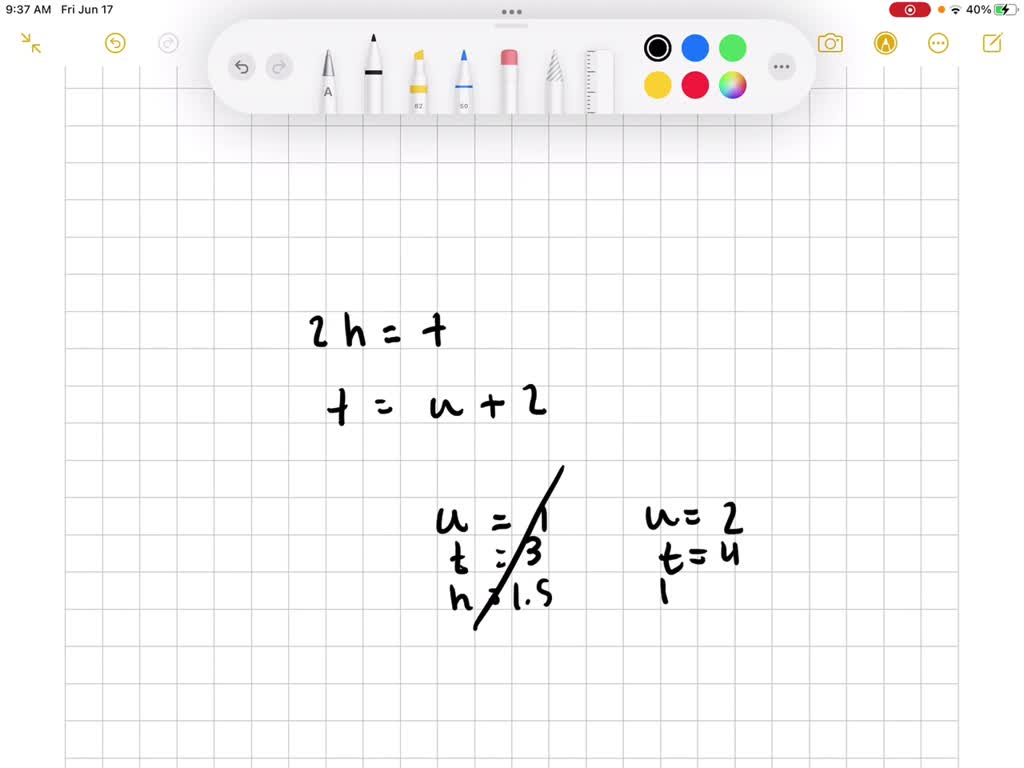 9:37 AM Fri Jun 17
40%
A
82
50
A
2h = t
t = u + 2
u = 1
t = 3
h = 1.5
u = 2
t = 4